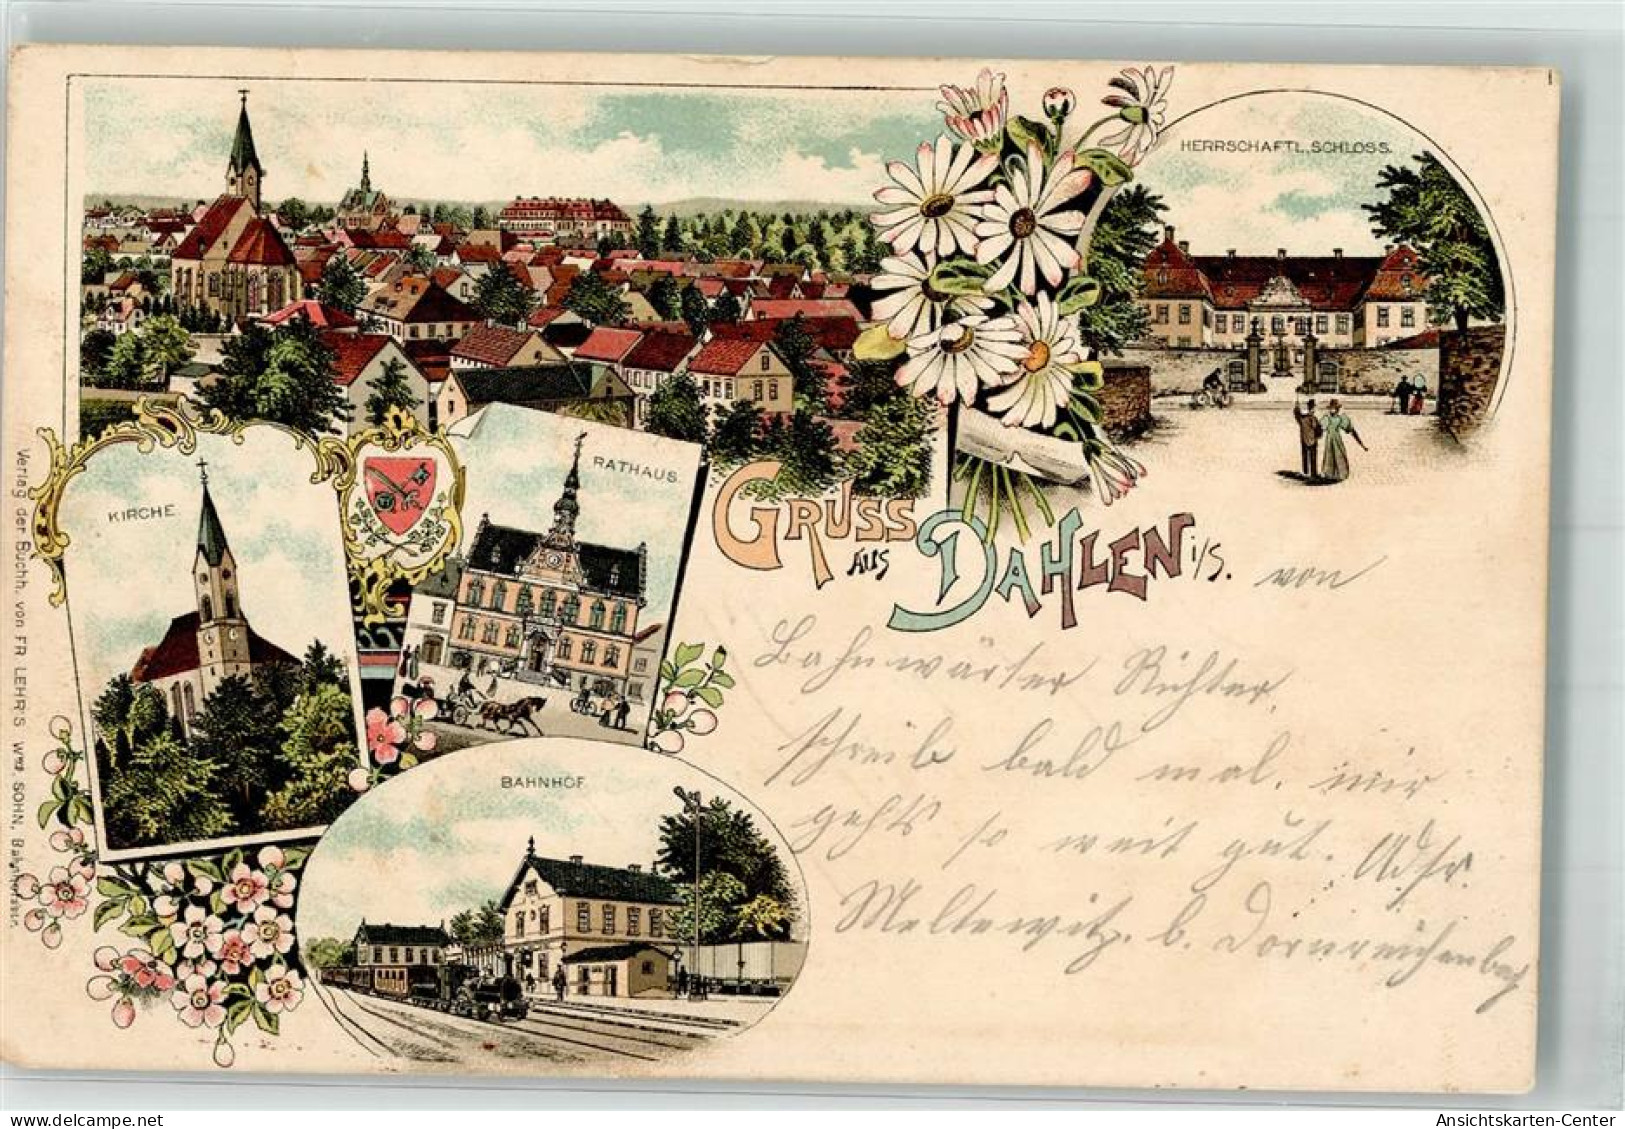 HERRSCHAFTL. SCHLOSS.
KIRCHE
RATHAUS
GRUSS
AUS
DAHLEN i/S.
von
Bahnwärter Richter,
schreib bald mal, mir
gehts so weit gut. Adr.
Meltewitz. b. Dornreichenbach
BAHNHOF
Verlag der Buchh. von FR. LEHR'S Wwe. SOHN, Bahnhofstr.
Ansichtskarten-Center